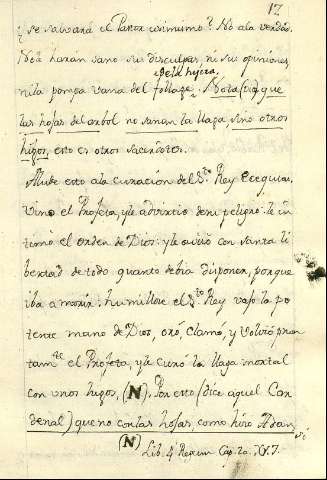 17
¿se salvará el Pastor ¿? No á la verdad.
No á hurán sano sus disculpas, ni sus opiniones,
de la hyera
ni la pompa vana del follage. Nota (dice) que
las hojas del arbol no sanan la llaga, sino otros
higos, esto es otros sacerdotes.
Alude esto a la curación del Sto. Rey Ezequias,
vino el Profeta, y le advirtio de su peligro: le in-
timó el orden de Dios: y le avisó con santa li-
bertad de todo quanto debia disponer, porque
iba a morir: humillose el Sto. Rey vajo la po-
tente mano de Dios, oró, clamó, y volvió pron
tamte. el Profeta, y le curó la llaga mortal
con unos higos, (N). Por esto (dice aquel Car
denal) que no con las hojas, como hizo Adan
(N) Lib. 4 Regum Cap. 20. V. 7.